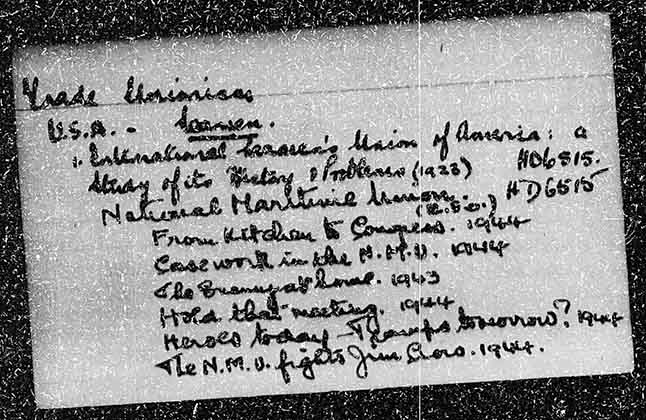 Trade Unionism
U.S.A. - Seamen.
1. International Seamen's Union of America: a
Study of its History & Problems (1923) HD6515.
National Maritime Union. (U.S.A.) HD6515
From Kitchen to Congress. 1944
Case work in the N.M.U. 1944
The Enemy at home. 1943
Hold that meeting. 1944
Heroes today - Tramps tomorrow? 1944
The N.M.U. fights Jim Crow. 1944.